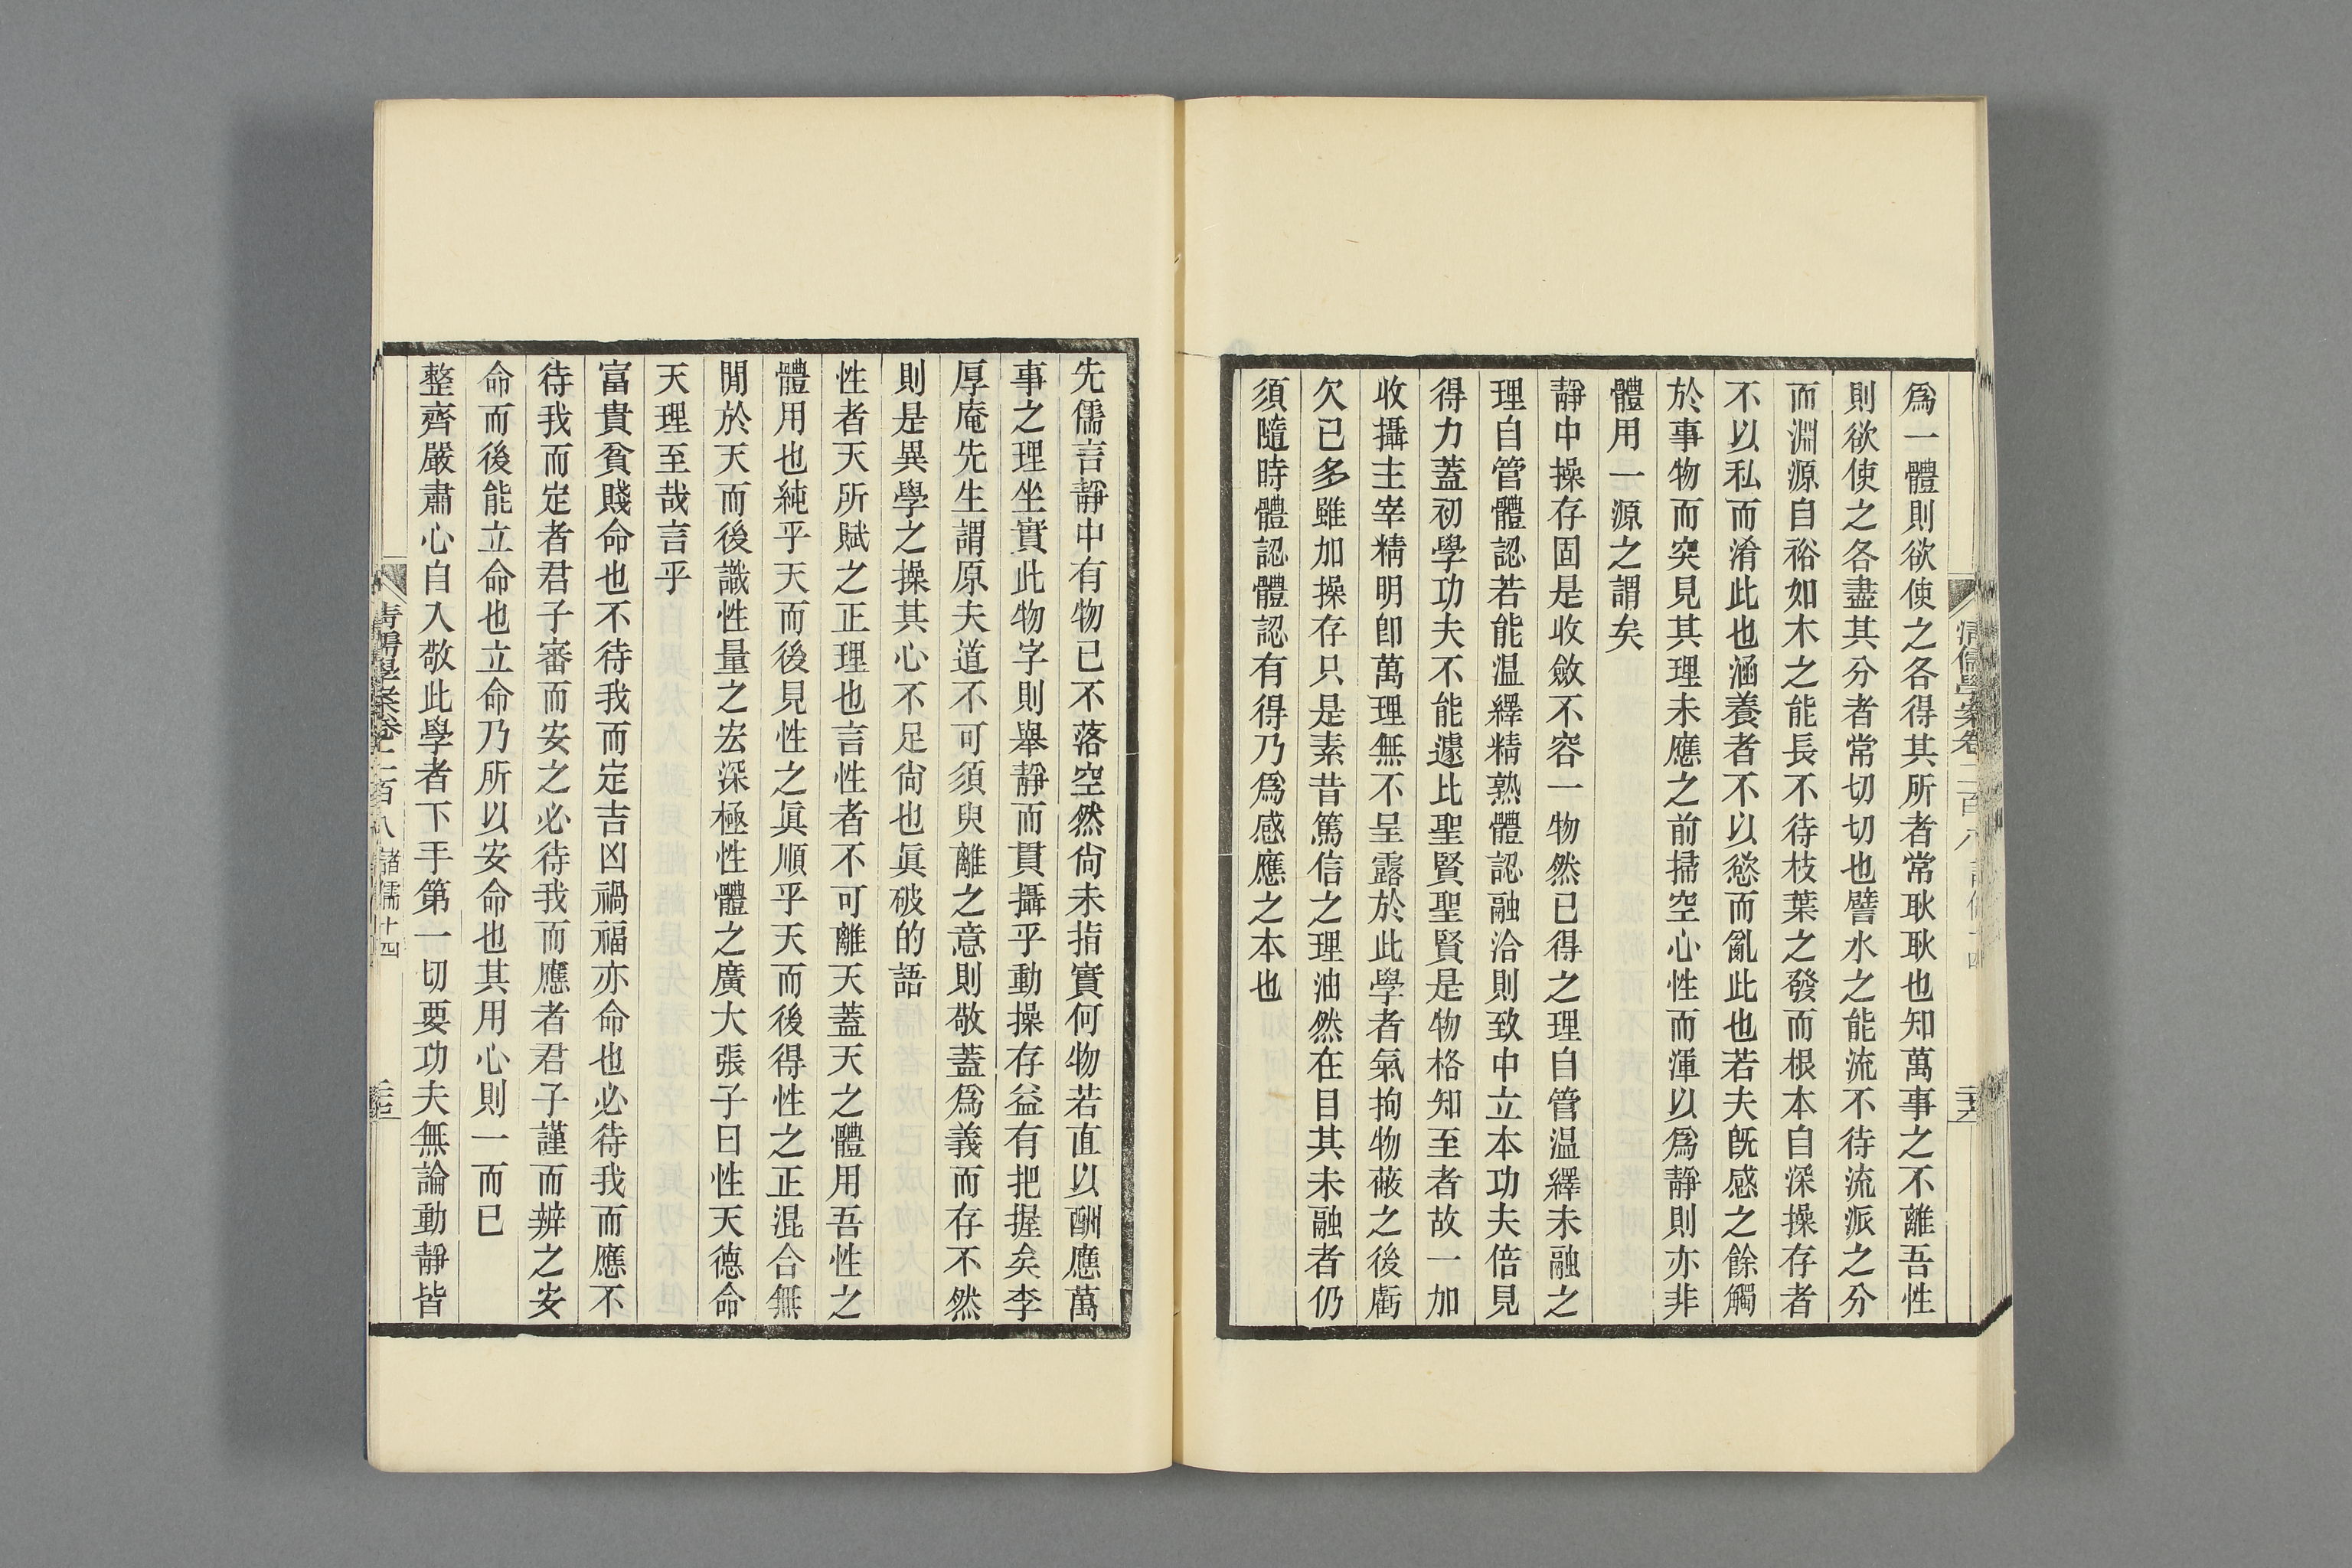 爲一體則欲使之各得其所者常耿耿也知萬事之不離吾性
則欲使之各盡其分者常切切也譬水之能流不待流派之分
而淵源自裕如木之能長不待枝葉之發而根本自深操存者
不以私而淆此也涵養者不以慾而亂此也若夫旣感之餘觸
於事物而突見其理未應之前掃空心性而渾以爲靜則亦非
體用一源之謂矣
靜中操存固是收斂不容一物然已得之理自管溫繹未融之
理自管體認若能溫繹精熟體認融洽則致中立本功夫倍見
得力蓋初學功夫不能遽比聖賢聖賢是物格知至者故一加
收攝主宰精明卽萬理無不呈露於此學者氣拘物蔽之後虧
欠已多雖加操存只是素昔篤信之理油然在目其未融者仍
須隨時體認體認有得乃爲感應之本也
清儒學案卷二百八
先儒言靜中有物已不落空然尙未指實何物若直以酬應萬
事之理坐實此物字則舉靜而貫攝乎動操存益有把握矣李
厚庵先生謂原夫道不可須臾離之意則敬蓋爲義而存不然
則是異學之操其心不足尙也眞破的語
性者天所賦之正理也言性者不可離天蓋天之體用吾性之
體用也純乎天而後見性之眞順乎天而後得性之正混合無
閒於天而後識性量之宏深極性體之廣大張子曰性天德命
天理至哉言乎
富貴貧賤命也不待我而定吉凶禍福亦命也必待我而應不
待我而定者君子審而安之必待我而應者君子謹而辨之安
命而後能立命也立命乃所以安命也其用心則一而已
整齊嚴肅心自入敬此學者下手第一切要功夫無論動靜皆
清儒學案卷二百八 諸儒十四